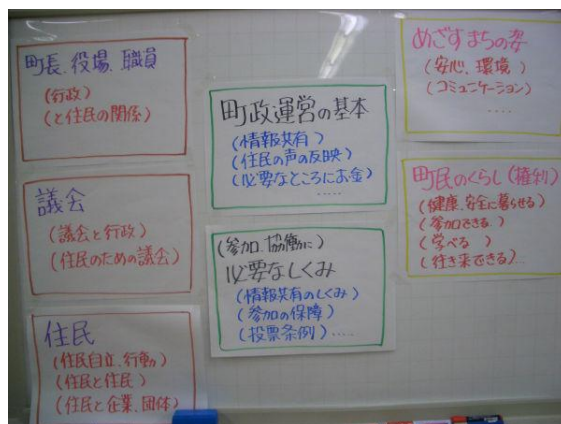 町長、役場、職員
(行政)
(と住民の関係)
議会
(議会と行政)
(住民のための議会)
住民
(住民自立、行動)
(住民と住民)
(住民と企業、団体)
町政運営の基本
(情報共有)
(住民の声の反映)
(必要なところにお金)
.....
(参加、協働に)
必要なしくみ
(情報共有のしくみ)
(参加の保障)
(投票条例).....
めざすまちの姿
(安心、環境)
(コミュニケーション)
....
町民のくらし(権利)
(健康、安全に暮らせる)
(参加できる)
(学べる)
(往き来できる)...